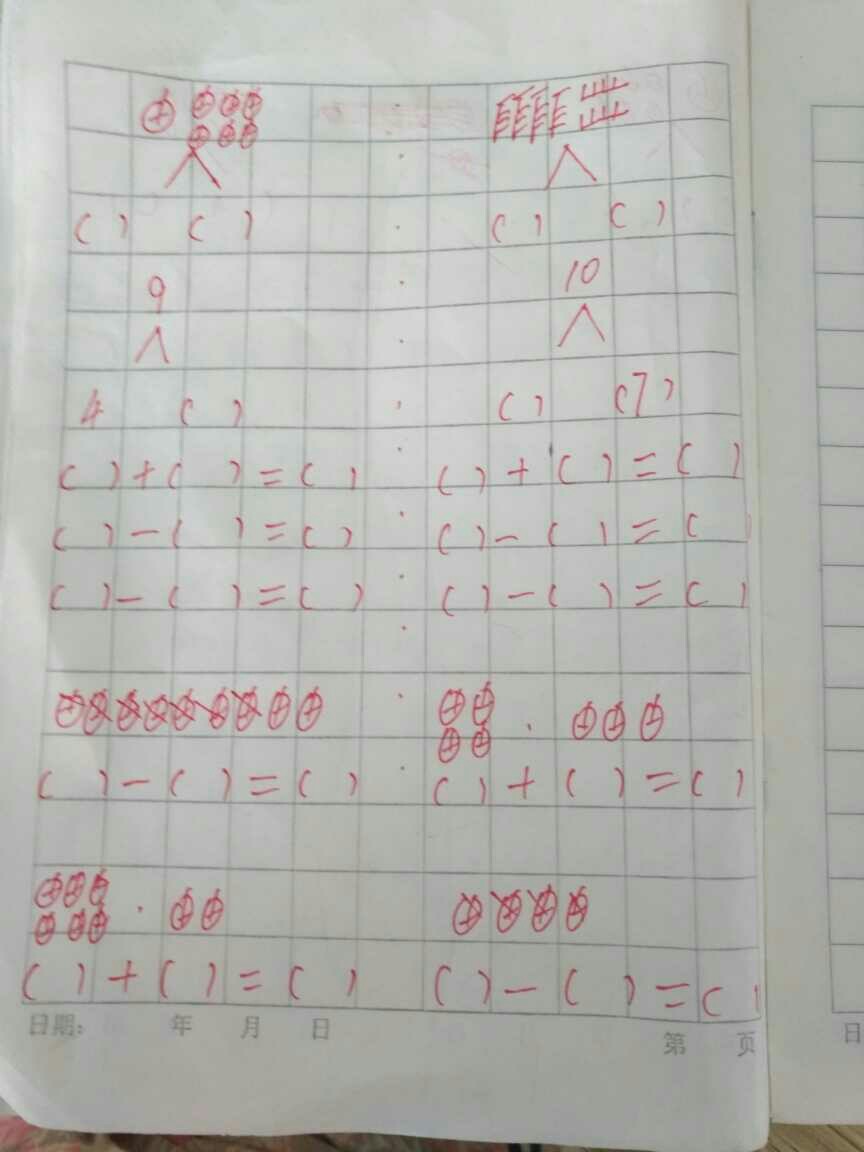 ( ) ( ) ( ) ( )
9 10
4 ( ) ( ) (7)
( ) + ( ) = ( ) ( ) + ( ) = ( )
( ) - ( ) = ( ) ( ) - ( ) = ( )
( ) - ( ) = ( ) ( ) - ( ) = ( )
( ) - ( ) = ( ) ( ) + ( ) = ( )
( ) + ( ) = ( ) ( ) - ( ) = ( )
日期: 年 月 日
第 页
日